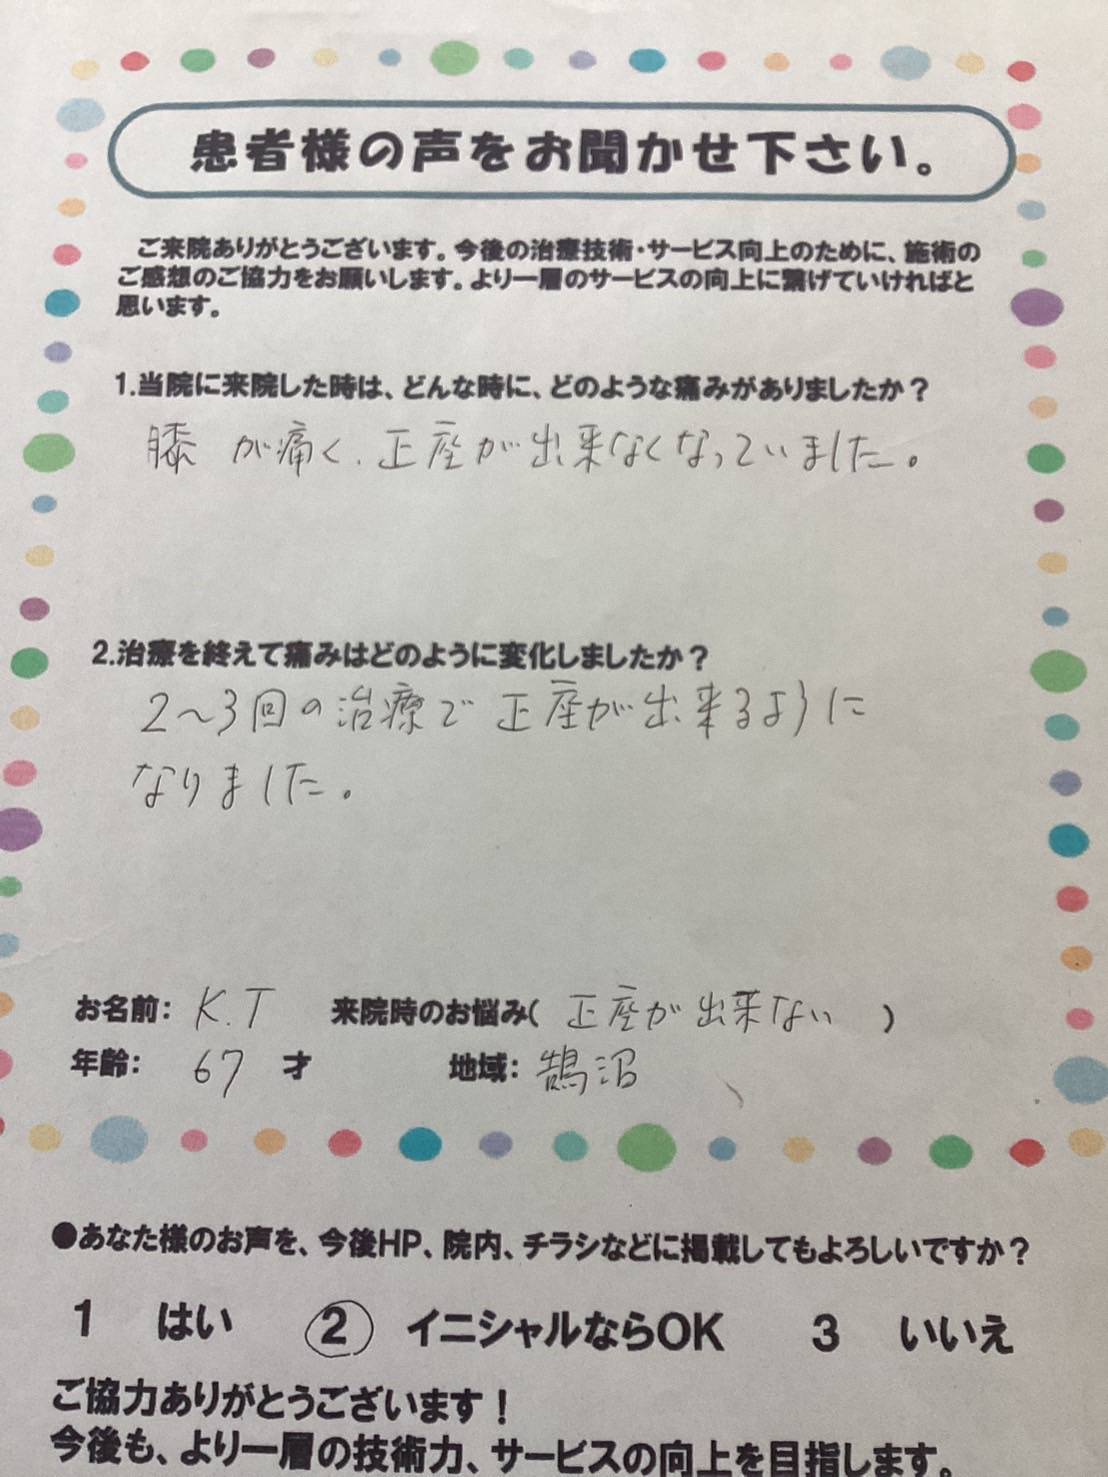 患者様の声をお聞かせ下さい。
ご来院ありがとうございます。今後の治療技術・サービス向上のために、施術の
ご感想のご協力をお願いします。より一層のサービスの向上に繋げていければと
思います。
1.当院に来院した時は、どんな時に、どのような痛みがありましたか？
膝が痛く、正座が出来なくなっていました。
2.治療を終えて痛みはどのように変化しましたか？
2～3回の治療で正座が出来るように
なりました。
お名前： K.T 来院時のお悩み( 正座が出来ない )
年齢： 67 才 地域： 鵠沼
●あなた様のお声を、今後HP、院内、チラシなどに掲載してもよろしいですか？
1 はい ② イニシャルならOK 3 いいえ
ご協力ありがとうございます！
今後も、より一層の技術力、サービスの向上を目指します。